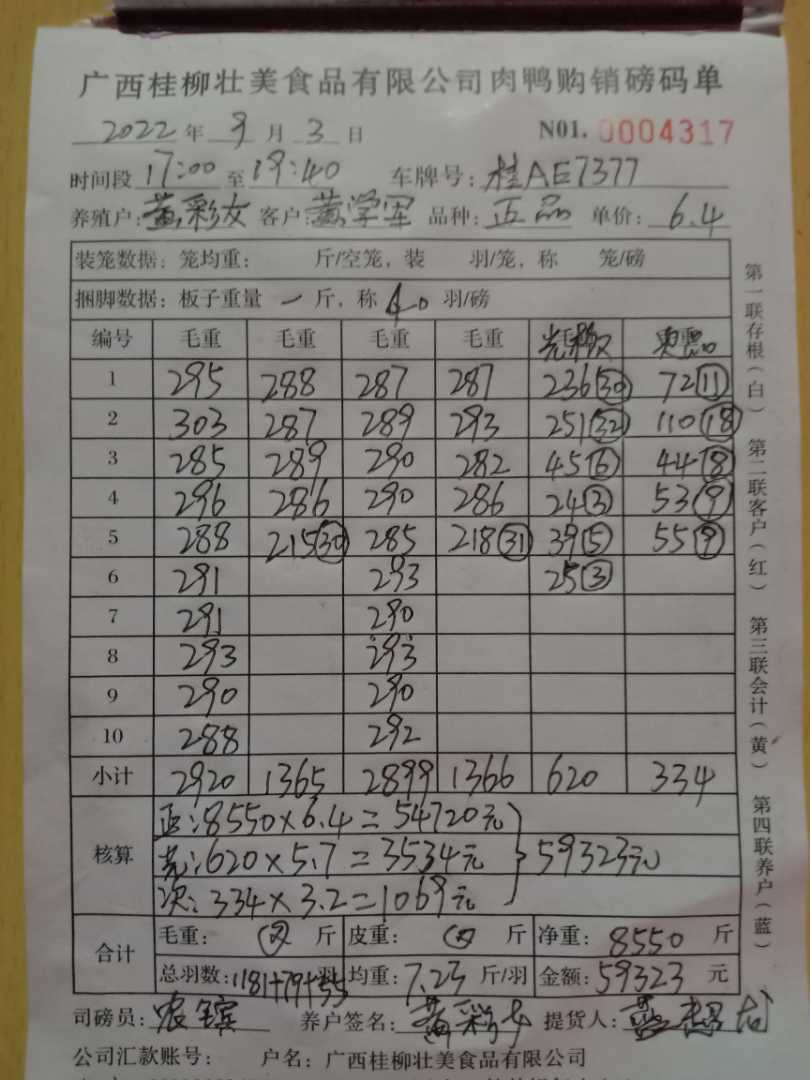 广西桂柳壮美食品有限公司肉鸭购销磅码单
2022年9月3日 N01. 0004317
时间段 17:00 至 19:40 车牌号: 桂AE7377
养殖户: 黄彩女 客户: 黄学军 品种: 正品 单价: 6.4
装笼数据: 笼均重: 斤/空笼, 装 羽/笼, 称 笼/磅
捆脚数据: 板子重量 一 斤, 称 40 羽/磅
编号 毛重 毛重 毛重 毛重
1 295 288 287 287 236(30) 72(11)
2 303 287 289 293 251(32) 110(18)
3 285 289 290 282 45(6) 44(8)
4 296 286 290 286 24(3) 53(9)
5 288 215(30) 285 218(31) 39(5) 55(9)
6 291 293 25(3)
7 291 290
8 293 293
9 290 290
10 288 292
小计 2920 1365 2899 1366 620 334
核算
正:8550×6.4=54720元
光:620×5.7=3534元 } 59323元
次:334×3.2=1069元
合计
毛重: 斤 皮重: 斤 净重: 8550 斤
总羽数: 1181+79+55 羽 均重: 7.23 斤/羽 金额: 59323 元
司磅员: 农镔 养户签名: 黄彩女 提货人:
公司汇款账号: 户名: 广西桂柳壮美食品有限公司
第一联存根(白)
第二联客户(红)
第三联会计(黄)
第四联养户(蓝)